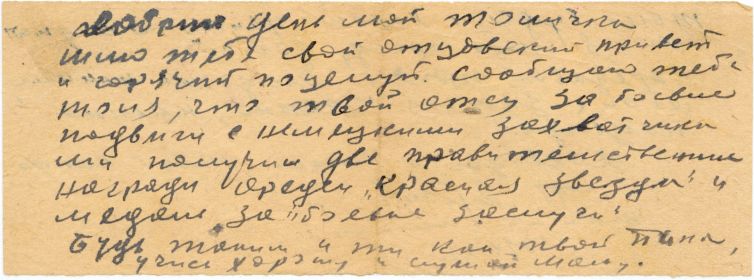 Добрий день мой толичка
шлю тебе свой отцовский привет
и горячий поцелуй. Сообщаю тебе
толя, что твой отец за боевие
подвиги с немецкими захватчика
ми получил две правительствение
награди ореден „Красная звезда" и
медаль за "боевие заслуги"
Будь таким и ти как твой папа,
учись хорошо и слушай маму.